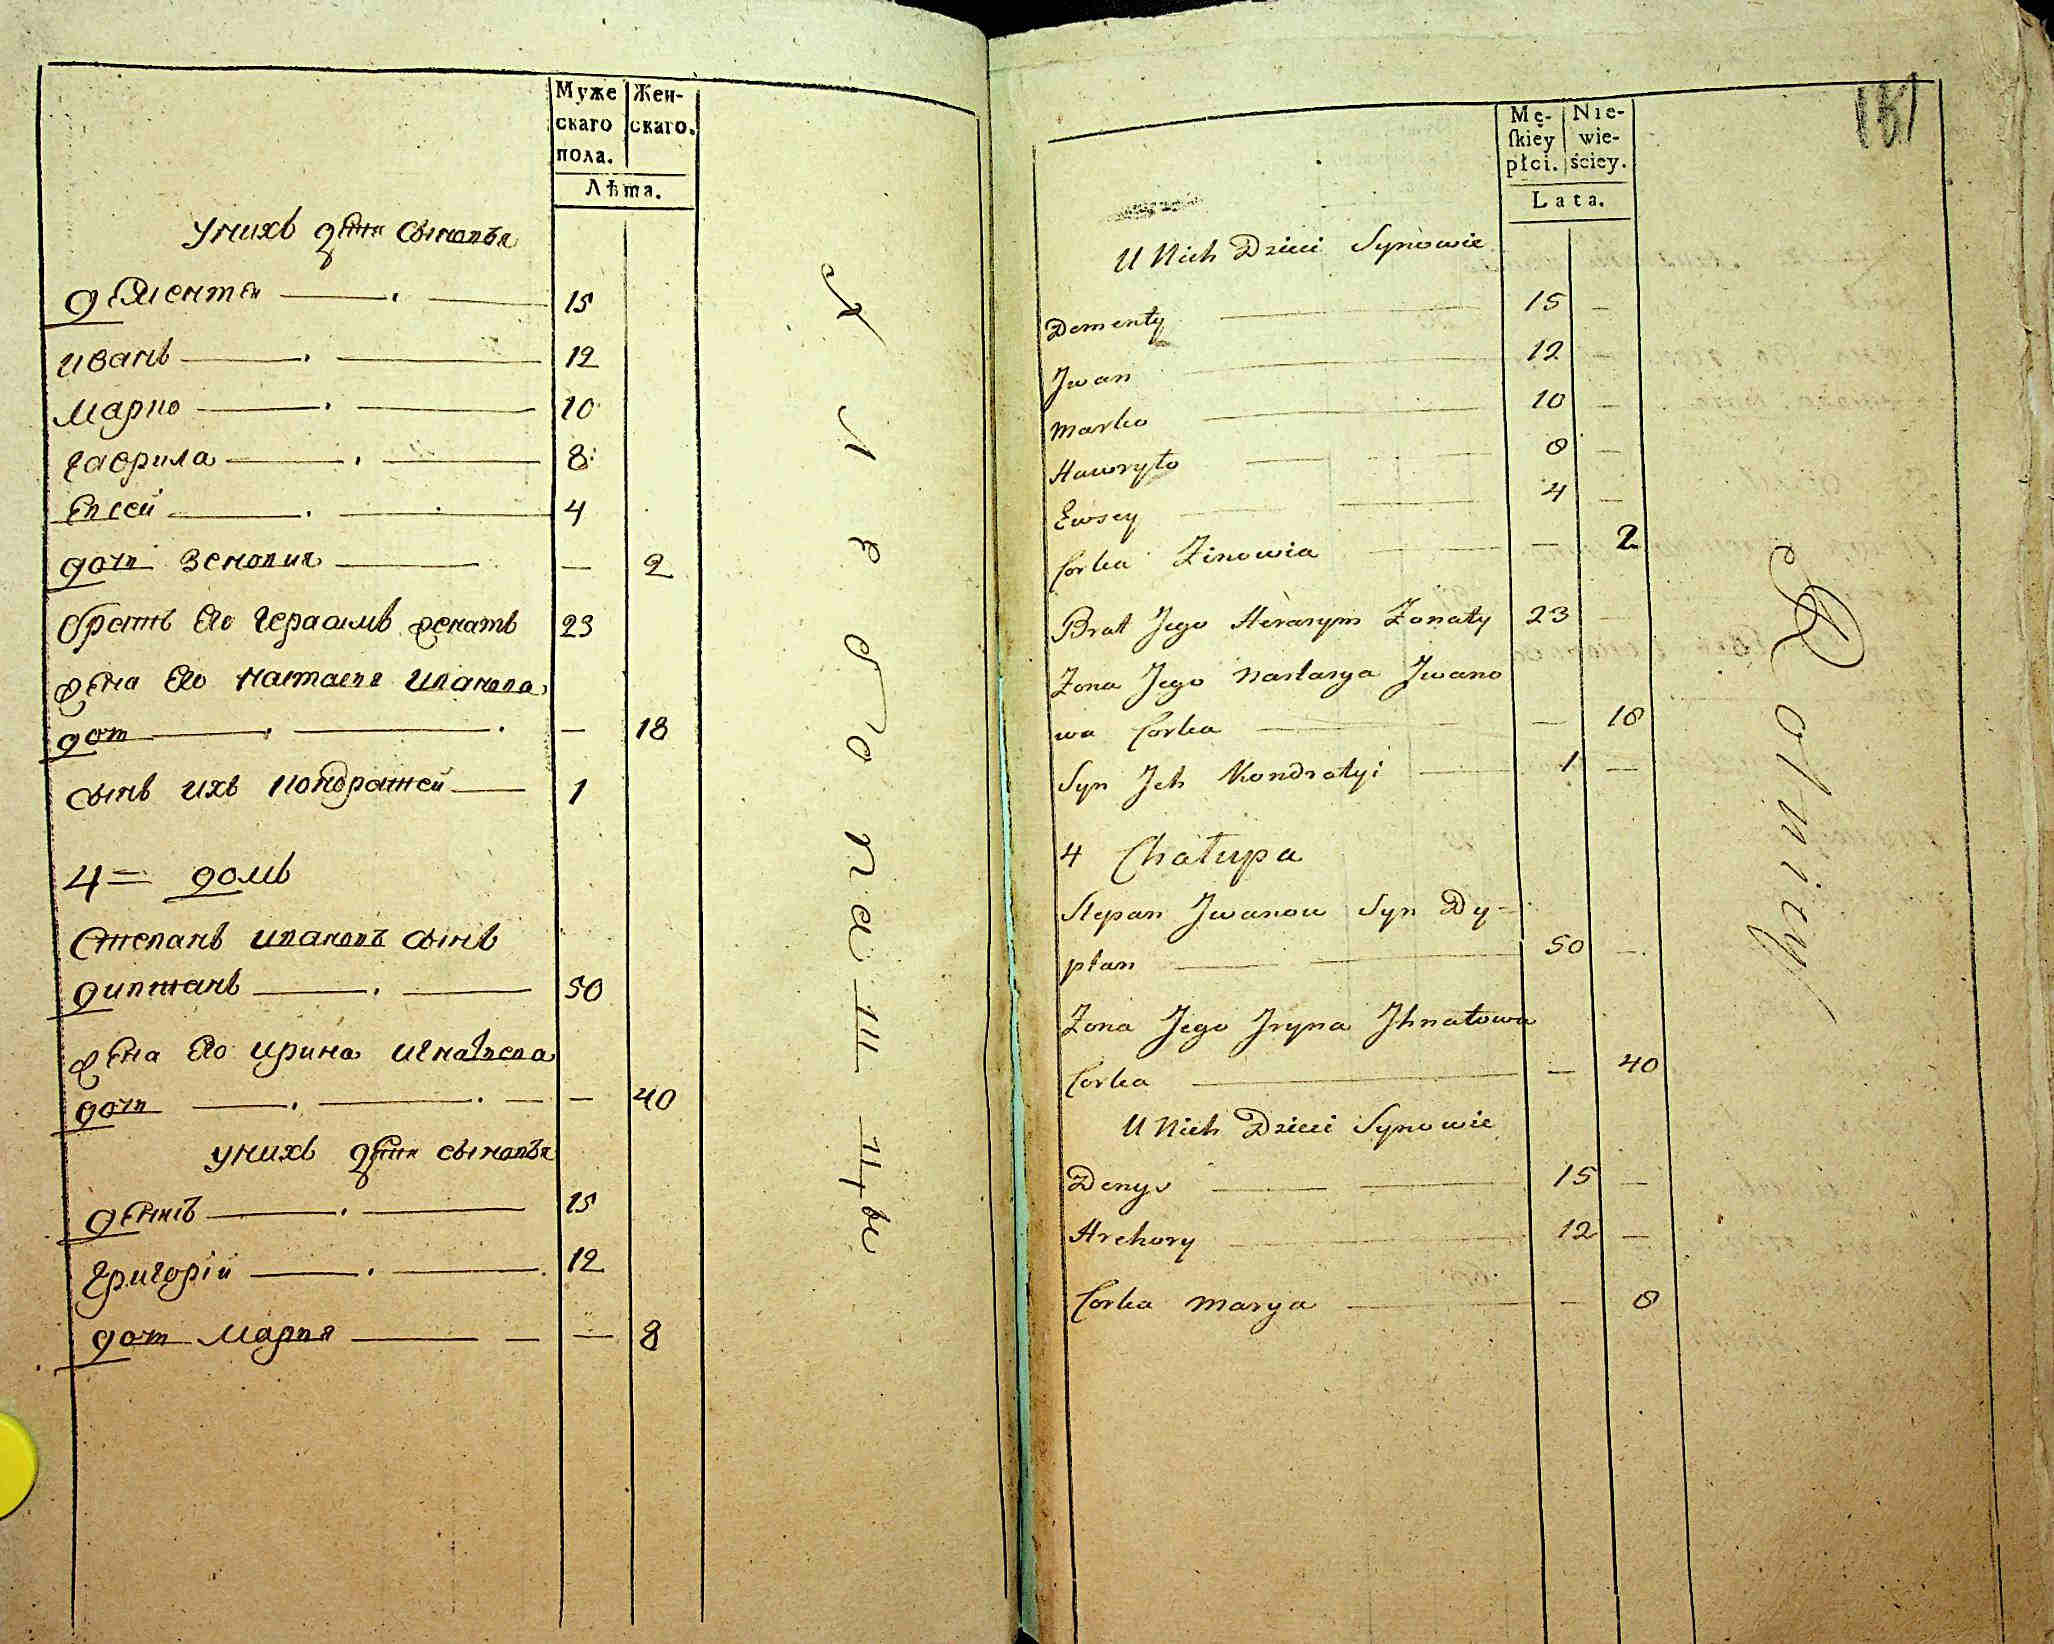 Муже
скаго
пола.
Жен-
скаго.
Лѣта.
У нихъ дѣти сыновья
Дементеи 15
Иванъ 12
Марко 10
Гаврила 8
Евсей 4
дочь Зеновия — 2
братъ Его Герасимъ женатъ 23
жена Его Настасья Иванова
дочь — 18
сынъ ихъ Кондратей 1
4 домъ
Степанъ Ивановъ сынъ
Диптанъ 50
жена Его Ирина Игнатьева
дочь — 40
у нихъ дѣти сыновья
Денисъ 15
Григорій 12
дочь Марья — 8
Хлебопашцы
Mę-
ſkiey
płci.
Nie-
wie-
ściey.
Lata.
U Nich Dzieci Synowie
Dementy 15 —
Jwan 12 —
Marko 10 —
Hawryło 8 —
Ewsey 4 —
Corka Zinowia — 2
Brat Jego Herasym Zonaty 23 —
Zona Jego Nastasya Jwano
wa Corka — 18
Syn Jch Kondratyi 1 —
4 Chałupa
Stepan Jwanow Syn Dy-
ptan 50 —
Zona Jego Jryna Jhnatowa
Corka — 40
U Nich Dzieci Synowie
Denys 15 —
Hrehory 12 —
Corka Marya — 8
Rolnicy